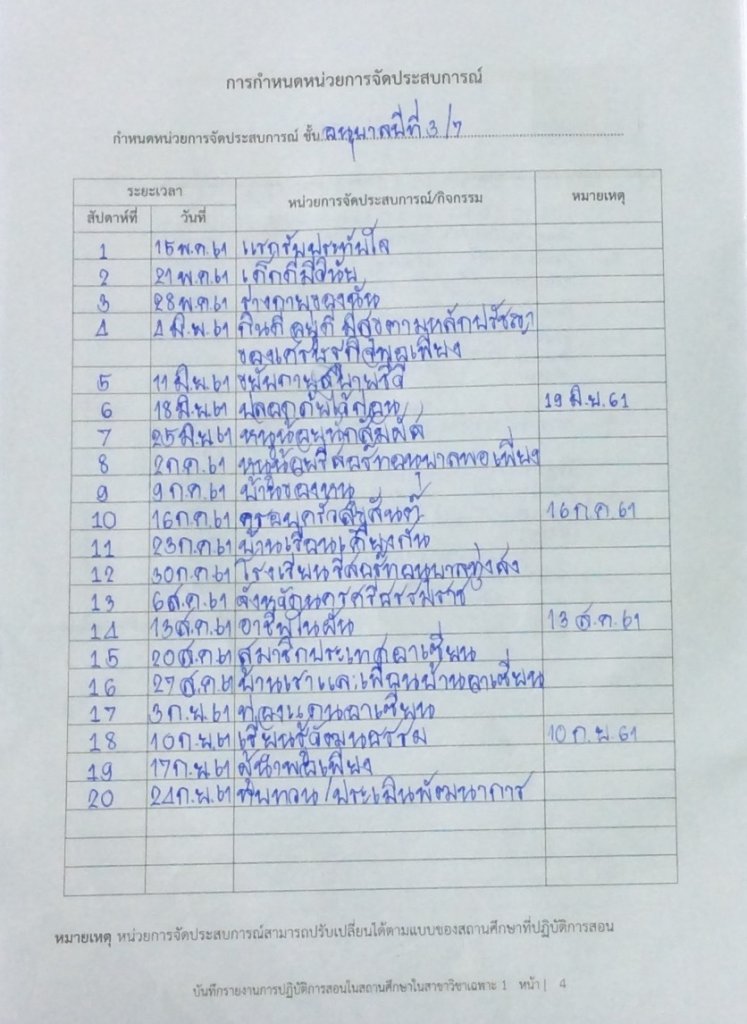 การกำหนดหน่วยการจัดประสบการณ์
กำหนดหน่วยการจัดประสบการณ์ ชั้น อนุบาลปีที่ 3/7
ระยะเวลา หน่วยการจัดประสบการณ์/กิจกรรม หมายเหตุ
สัปดาห์ที่ วันที่
1 15 พ.ค. 61 แรกรับประทับใจ
2 21 พ.ค. 61 เด็กดีมีวินัย
3 28 พ.ค. 61 ร่างกายของฉัน
4 4 มิ.ย. 61 กินดี อยู่ดี มีสุขตามหลักปรัชญา
ของเศรษฐกิจพอเพียง
5 11 มิ.ย. 61 ขยับกายสบายชีวี
6 18 มิ.ย. 61 ปลอดภัยไว้ก่อน 19 มิ.ย. 61
7 25 มิ.ย. 61 หนูน้อยนักสัมผัส
8 2 ก.ค. 61 หนูน้อยรีสอร์ทอนุบาลพอเพียง
9 9 ก.ค. 61 บ้านของหนู
10 16 ก.ค. 61 ครอบครัวสุขสันต์ 16 ก.ค. 61
11 23 ก.ค. 61 บ้านเรือนเคียงกัน
12 30 ก.ค. 61 โรงเรียนรีสอร์ทอนุบาลทุ่งสง
13 6 ส.ค. 61 จังหวัดนครศรีธรรมราช
14 13 ส.ค. 61 อาชีพในฝัน 13 ส.ค. 61
15 20 ส.ค. 61 สมาชิกประเทศอาเซียน
16 27 ส.ค. 61 บ้านเราและเพื่อนบ้านอาเซียน
17 3 ก.ย. 61 ท่องแดนอาเซียน
18 10 ก.ย. 61 เรียนรู้วัฒนธรรม 10 ก.ย. 61
19 17 ก.ย. 61 ผู้นำพอเพียง
20 24 ก.ย. 61 ทบทวน/ประเมินพัฒนาการ
หมายเหตุ หน่วยการจัดประสบการณ์สามารถปรับเปลี่ยนได้ตามแบบของสถานศึกษาที่ปฏิบัติการสอน
บันทึกรายงานการปฏิบัติการสอนในสถานศึกษาในสาขาวิชาเฉพาะ 1 หน้า | 4